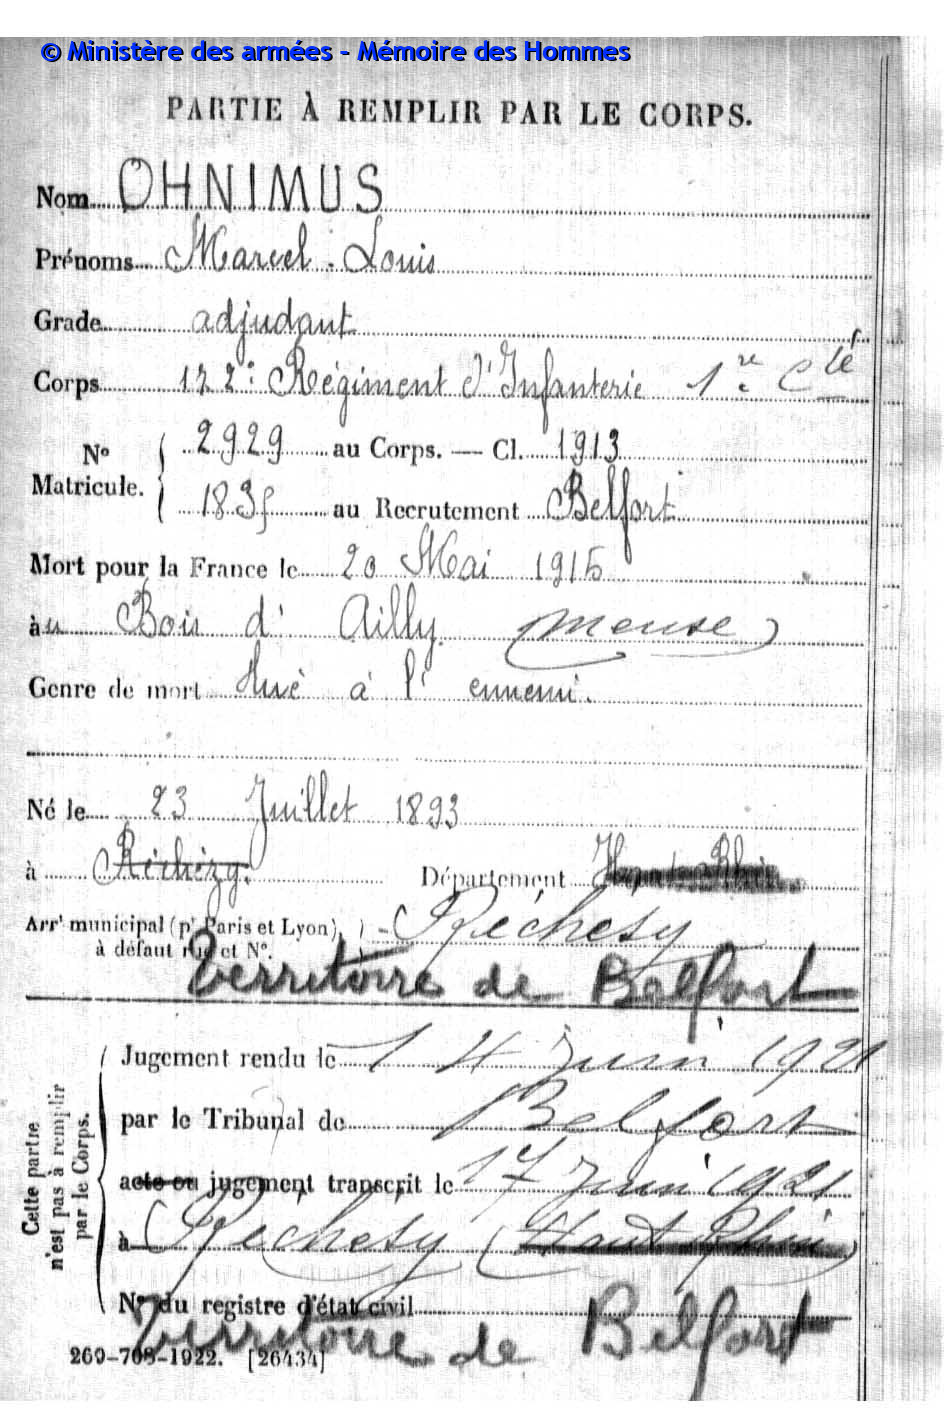 © Ministère des armées - Mémoire des Hommes
PARTIE À REMPLIR PAR LE CORPS.
Nom OHNIMUS
Prénoms Marcel Louis
Grade adjudant
Corps 172e Régiment d'Infanterie 1re Cie
No Matricule. 2929 au Corps. — Cl. 1913
1835 au Recrutement Belfort
Mort pour la France le 20 Mai 1915
àu Bois d'Ailly (Meuse)
Genre de mort tué à l'ennemi.
Né le 23 Juillet 1893
à Réchézy. Département Haut Rhin
Arrt municipal (pr Paris et Lyon), à défaut rue et No. Réchésy
Territoire de Belfort
Cette partie n'est pas à remplir par le Corps.
Jugement rendu le 14 Juin 1921
par le Tribunal de Belfort
acte ou jugement transcrit le 17 Juin 1921
à Réchésy (Haut Rhin)
No du registre d'état civil
Territoire de Belfort
269-708-1922. [26434]